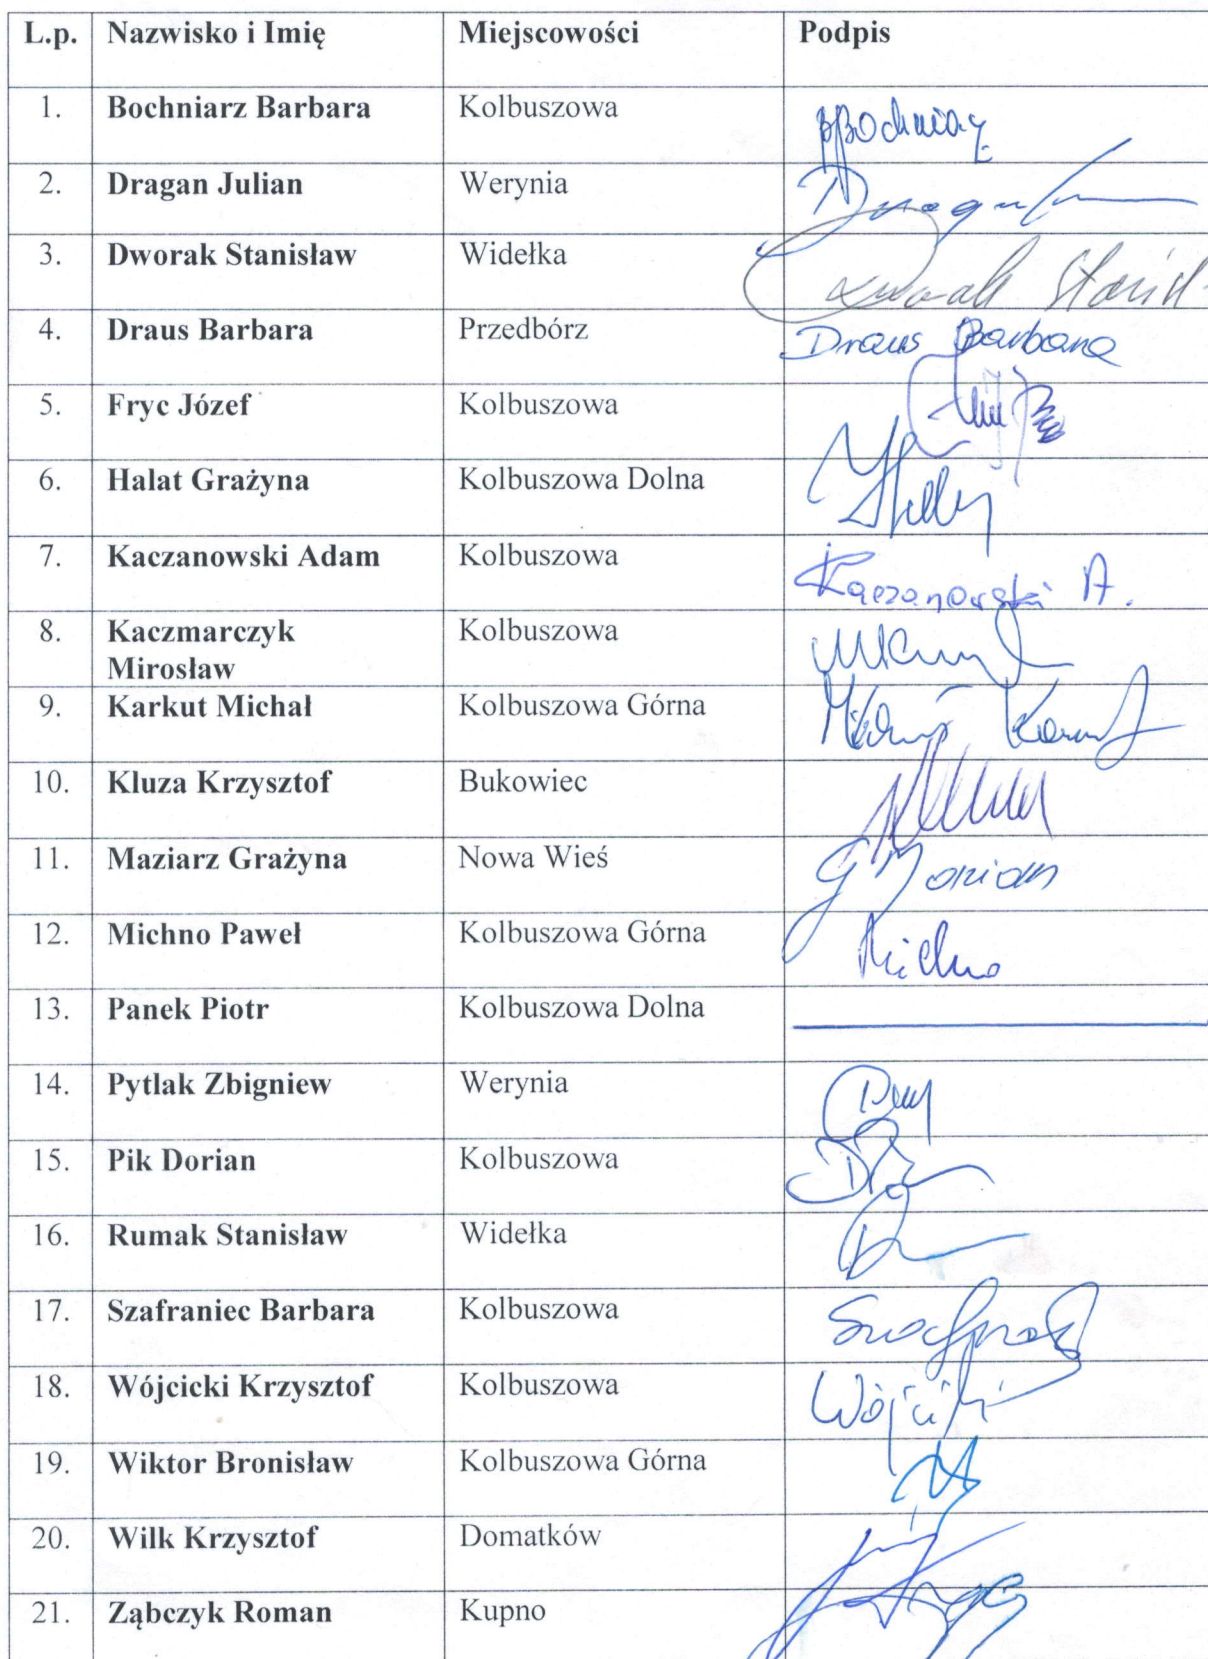 L.p. Nazwisko i Imię Miejscowości Podpis
1. Bochniarz Barbara Kolbuszowa BBochniarz
2. Dragan Julian Werynia Dragan
3. Dworak Stanisław Widełka Dworak Stanisł
4. Draus Barbara Przedbórz Draus Barbara
5. Fryc Józef Kolbuszowa
6. Halat Grażyna Kolbuszowa Dolna
7. Kaczanowski Adam Kolbuszowa Kaczanowski A.
8. Kaczmarczyk Kolbuszowa
Mirosław
9. Karkut Michał Kolbuszowa Górna Michał Karkut
10. Kluza Krzysztof Bukowiec
11. Maziarz Grażyna Nowa Wieś GMaziarz
12. Michno Paweł Kolbuszowa Górna Michno
13. Panek Piotr Kolbuszowa Dolna
14. Pytlak Zbigniew Werynia
15. Pik Dorian Kolbuszowa
16. Rumak Stanisław Widełka
17. Szafraniec Barbara Kolbuszowa
18. Wójcicki Krzysztof Kolbuszowa Wójcicki
19. Wiktor Bronisław Kolbuszowa Górna
20. Wilk Krzysztof Domatków
21. Ząbczyk Roman Kupno